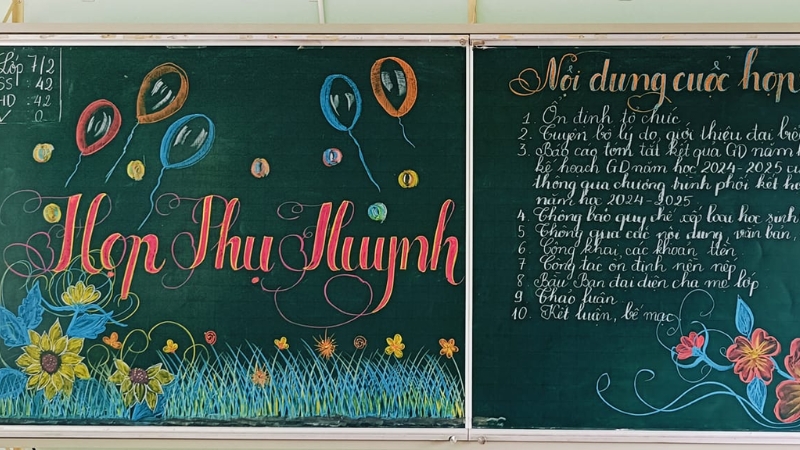 Lớp 7/2
SS : 42
HD : 42
V 0
Họp Phụ Huynh
Nội dung cuộc họp
1. Ổn định tổ chức
2. Tuyên bố lý do, giới thiệu đại biểu
3. Báo cáo tóm tắt kết quả GD năm h
kế hoạch GD năm học 2024-2025 củ
thông qua chương trình phối kết hợ
năm học 2024-2025
4. Thông báo quy chế xếp loại học sinh
5 Thông qua các nội dung, văn bản,
6 Công khai, các khoản tiền
7 Công tác ổn định nền nếp
8 Bầu Ban đại diện cha mẹ lớp
9 Thảo luận
10. Kết luận, bế mạc